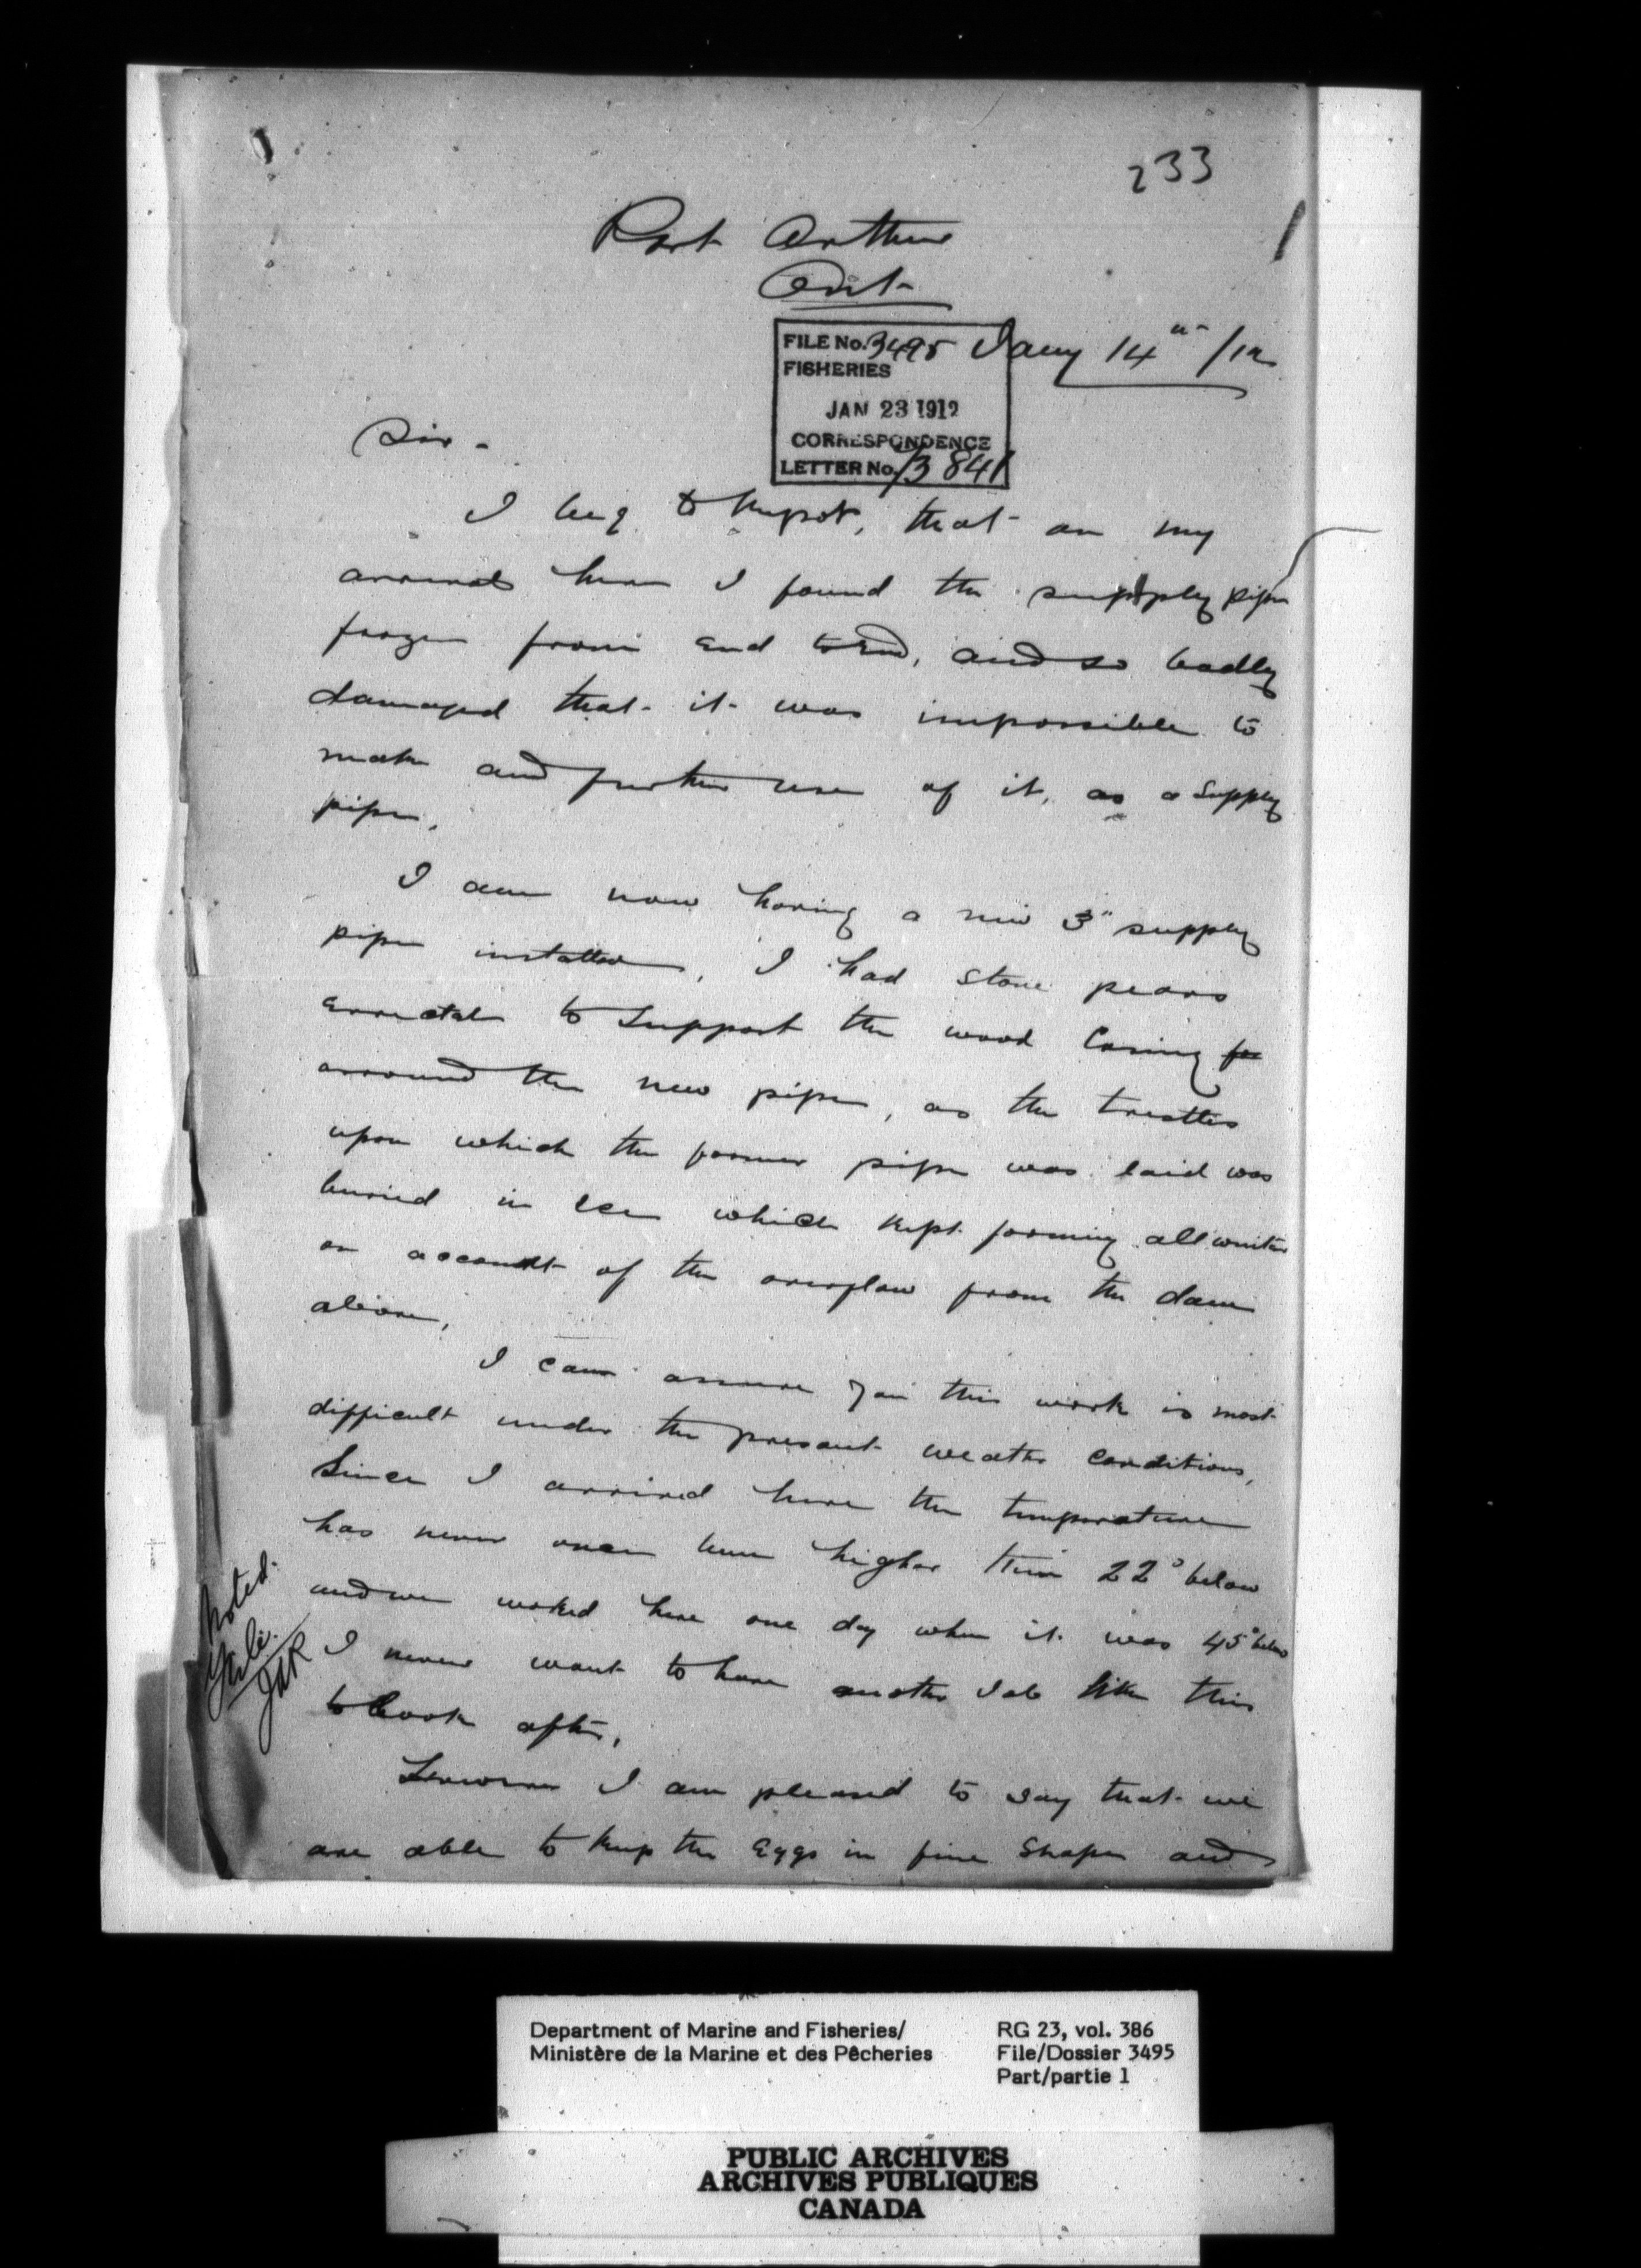 233
Port Arthur
Ont
FILE No. 3495 Jany 14th /12
FISHERIES
JAN 23 1912
CORRESPONDENCE
LETTER No. 13841
Sir -
I beg to Report, that on my
arrival here I found the supply pipe
frozen from End to End, and so badly
damaged that it was impossible to
make and further use of it, as a Supply
pipe.
I am now having a new 3" supply
pipe installed, I had stone pears
errected to Support the wood Casing for
arround the new pipe, as the trestles
upon which the former pipe was laid was
buried in Ice which kept forming all winter
on account of the overflow from the dam
above,
I can assure you this work is most
difficult under the present weather Conditions,
Since I arrived here the temperature
has never once been higher than 22° below
and we worked here one day when it was 45° below
I never want to have another Job like this
to Look after,
However I am pleased to say that we
are able to keep the Eggs in fine Shape and
Noted.
File.
Department of Marine and Fisheries/
Ministère de la Marine et des Pêcheries
RG 23, vol. 386
File/Dossier 3495
Part/partie 1
PUBLIC ARCHIVES
ARCHIVES PUBLIQUES
CANADA